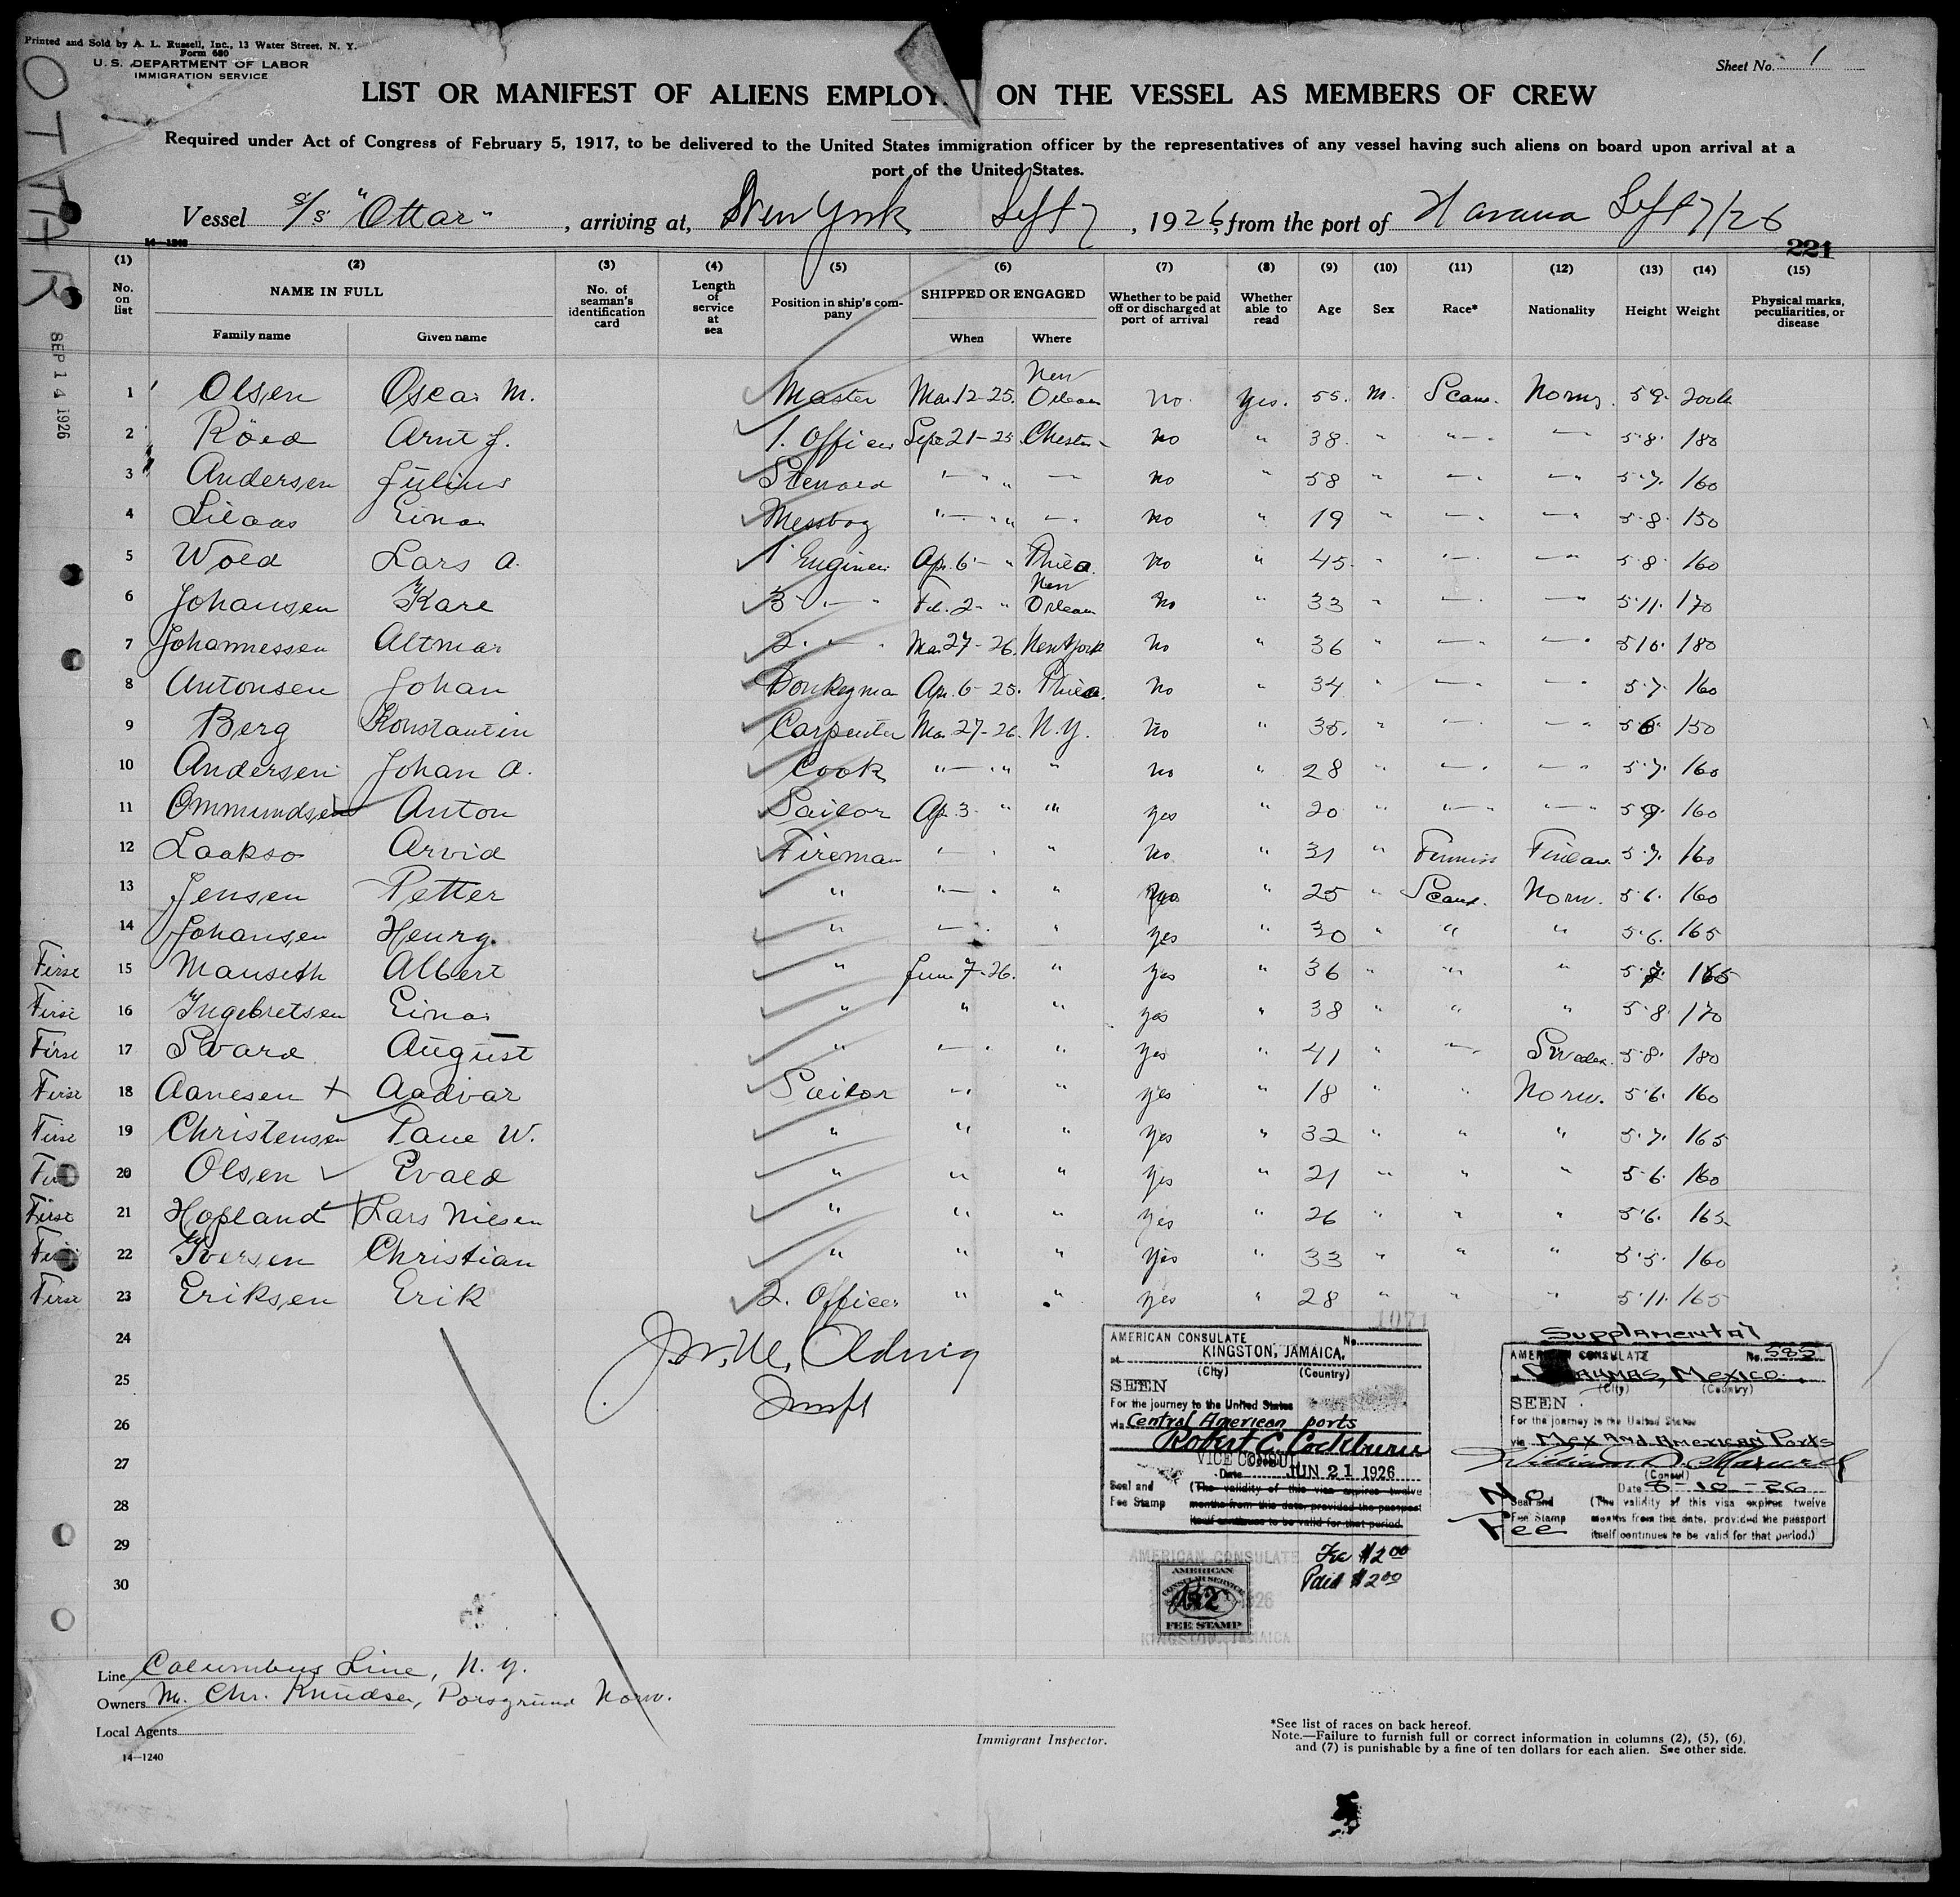 Printed and Sold by A. L. Russell, Inc., 13 Water Street, N. Y.
Form 680
U. S. DEPARTMENT OF LABOR
IMMIGRATION SERVICE
Sheet No. 1
OTTAR
SEP 14 1926
LIST OR MANIFEST OF ALIENS EMPLOY ON THE VESSEL AS MEMBERS OF CREW
Required under Act of Congress of February 5, 1917, to be delivered to the United States immigration officer by the representatives of any vessel having such aliens on board upon arrival at a
port of the United States.
Vessel S/S "Ottar", arriving at, New York Sept 7, 1926, from the port of Havana Sept 7/26
14-1240
221
(1) (2) (3) (4) (5) (6) (7) (8) (9) (10) (11) (12) (13) (14) (15)
No. on list NAME IN FULL Family name Given name No. of seaman's identification card Length of service at sea Position in ship's company SHIPPED OR ENGAGED When Where Whether to be paid off or discharged at port of arrival Whether able to read Age Sex Race* Nationality Height Weight Physical marks, peculiarities, or disease
1 Olsen Oscar M. Master Mar 12-25. New Orleans no. yes. 55. M. Scand. Norw. 5 9. 200
2 Röed Arnt J. 1. Officer Sept 21-25 Chester no " 38. " " " 5.8. 180
3 Andersen Julius Steward " " " no " 58 " " " 5.7. 160
4 Lilaas Einar Messboy " " " no " 19 " " " 5.8. 150
5 Wold Lars A. 1 Engineer Apr. 6 " Phila. no " 45. " " " 5.8. 160
6 Johansen Kare 3 " Feb. 2 " New Orleans no " 33 " " " 5.11. 170
7 Johannessen Altmar 2. " Mar 27-26. New York no " 36 " " " 5 10. 180
8 Antonsen Johan Donkeyman Apr. 6-25. Phila. no " 34 " " " 5.7. 160
9 Berg Konstantin Carpenter Mar 27-26. N.Y. no " 35. " " " 5 6. 150
10 Andersen Johan A. Cook " " " no " 28 " " " 5.7. 160
11 Ommundsen Anton Sailor Ap. 3 " " yes " 20 " " " 5 9. 160
12 Laakso Arvid Fireman " " no " 31 " Finnish Finland 5.7. 160
13 Jensen Petter " " " yes " 25 " Scand. Norw. 5.6. 160
14 Johansen Henry. " " " yes " 30 " " " 5.6. 165
First 15 Manseth Albert " June 7-26. " yes " 36 " " " 5.7 165
First 16 Ingebretsen Einar " " " yes " 38 " " " 5.8. 170
First 17 Svard August " " " yes " 41 " " Sweden. 5.8. 180
First 18 Aanesen + Aadvar Sailor " " yes " 18 " " Norw. 5.6. 160
First 19 Christensen Paul W. " " " yes " 32 " " " 5.7. 165
First 20 Olsen Evald " " " yes " 21 " " " 5 6. 160
First 21 Hopland Lars Nilsen " " " yes " 26 " " " 5'6. 165
First 22 Iversen Christian " " " yes " 33 " " " 5'5. 160
First 23 Eriksen Erik 2. Officer " " yes " 28 " " " 5'11. 165
24
25
26
27
28
29
30
1071
AMERICAN CONSULATE No.
at KINGSTON, JAMAICA.
(City) (Country)
SEEN
For the journey to the United States
via Central American ports
Robert C. Cockburn
VICE CONSUL
Date JUN 21 1926
Seal and Fee Stamp (The validity of this visa expires twelve
months from this date, provided the passport
itself continues to be valid for that period.
Fee $2.00
Paid $2.00
AMERICAN CONSULATE
AMERICAN
CONSULAR SERVICE
$2
FEE STAMP
KINGSTON, JAMAICA
Supplamental
AMERICAN CONSULATE No. 585
Mexico.
(City) (Country)
SEEN
For the journey to the United States
via Mex And American Ports
(Consul)
Date 8-10-26
No Fee
Seal and Fee Stamp (The validity of this visa expires twelve
months from this date, provided the passport
itself continues to be valid for that period.)
Line Columbus Line, N. Y.
Owners M. Chr. Knudsen, Porsgrund Norw.
Local Agents
14-1240
Immigrant Inspector.
*See list of races on back hereof.
Note.—Failure to furnish full or correct information in columns (2), (5), (6),
and (7) is punishable by a fine of ten dollars for each alien. See other side.